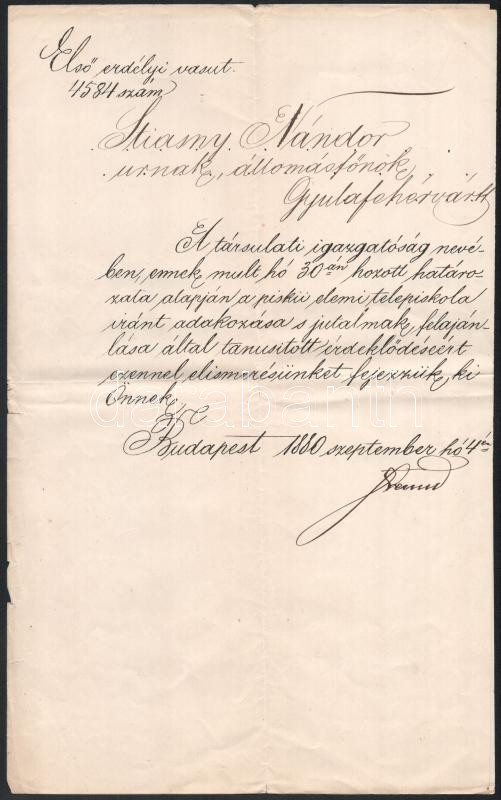 Első erdélyi vasut.
4584 szám
Stiasny Nándor
urnak, állomásfőnök,
Gyulafehérvártt
A társulati igazgatóság nevé-
ben, ennek mult hó 30-án hozott határo-
zata alapján a piskii elemi telepiskola
iránt adakozása s jutalmak felaján-
lása által tanusított érdeklődéseért
ezennel elismerésünket fejezzük ki
Önnek.
Budapest 1880 szeptember hó 4-én